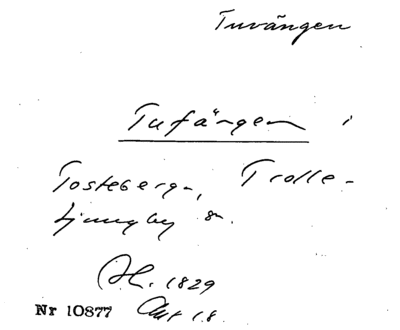 Tuvängen
Tufängen i
Tosteberga, Trolle-
Ljungby sn.
Sk. 1829
Nr 10877 Akt 18.